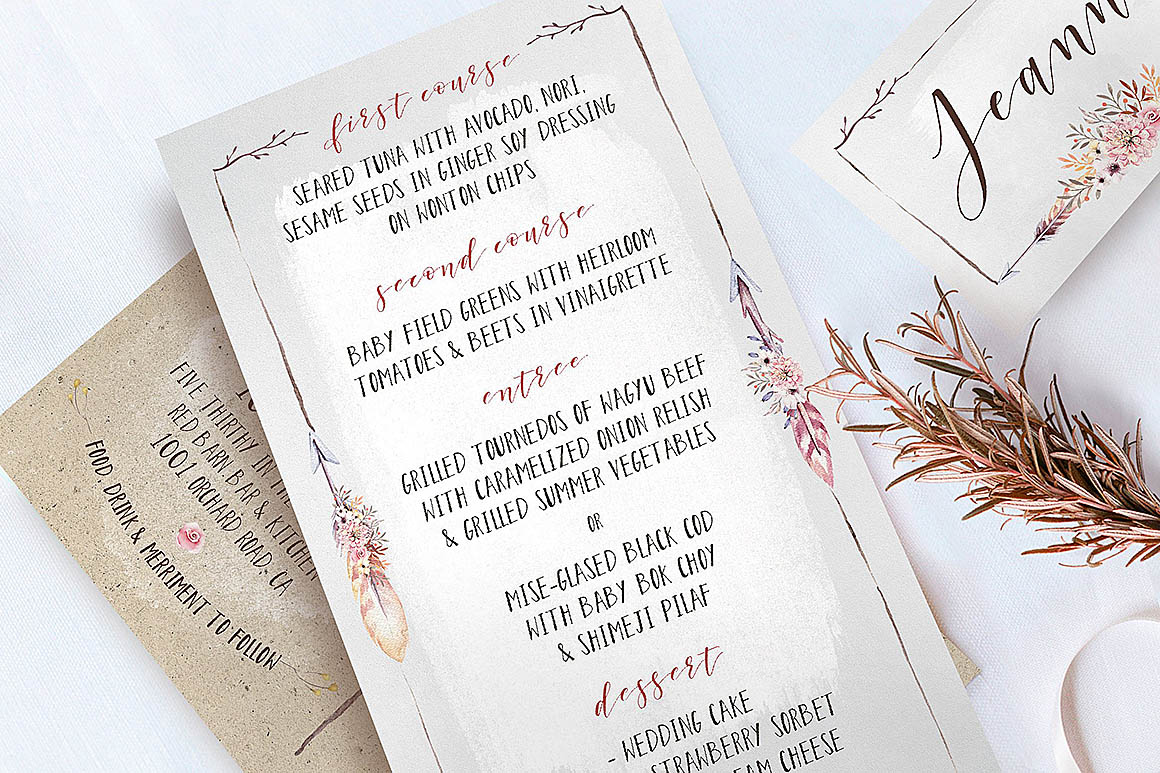 first course
SEARED TUNA WITH AVOCADO, NORI,
SESAME SEEDS IN GINGER SOY DRESSING
ON WONTON CHIPS
second course
BABY FIELD GREENS WITH HEIRLOOM
TOMATOES & BEETS IN VINAIGRETTE
entree
GRILLED TOURNEDOS OF NAGYU BEEF
WITH CARAMELIZED ONION RELISH
& GRILLED SUMMER VEGETABLES
OR
MISE-GLASED BLACK COD
WITH BABY BOK CHOY
& SHIMEJI PILAF
dessert
- WEDDING CAKE
STRAWBERRY SORBET
CHEESE
FIVE THIRTHY IN
RED BARN BAR & KITCHEN
1001 ORCHARD ROAD, CA
FOOD, DRINK & MERRIMENT TO FOLLOW